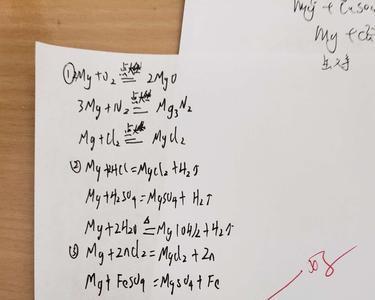 Mg + CuSO
Mg + Cl2
①2Mg+O2 点燃= 2MgO
3Mg+N2 点燃= Mg3N2
Mg+Cl2 点燃= MgCl2
② Mg+HCl=MgCl2+H2↑
Mg+H2SO4=MgSO4+H2↑
Mg+2H2O △= Mg(OH)2+H2↑
③ Mg+ZnCl2=MgCl2+Zn
Mg+FeSO4=MgSO4+Fe